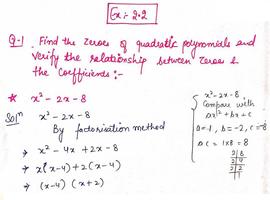 Ex:- 2.2
Q-1 Find the zeroes of quadratic polynomials and
verify the relationship between zeroes &
the coefficients:-
* x² - 2x - 8
Solⁿ x² - 2x - 8
By factorisation method
→ x² - 4x + 2x - 8
→ x(x-4) + 2(x-4)
→ (x-4) (x+2)
x² - 2x - 8
Compare with
ax² + bx + c
a=1, b=-2, c=-8
ac = 1x8 = 8
2|8
2|4
2|2